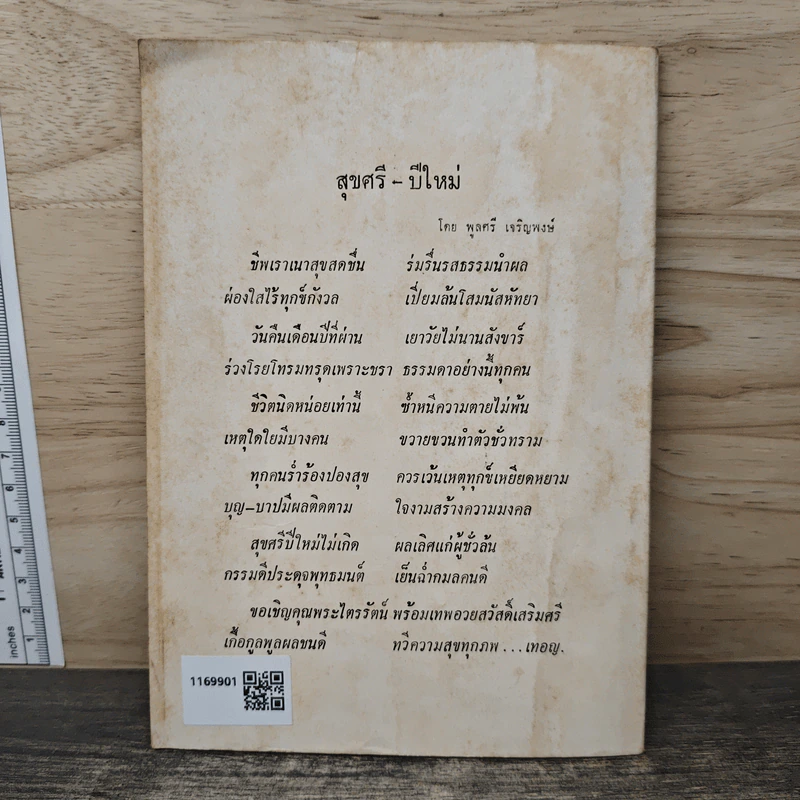 สุขศรี - ปีใหม่
โดย พูลศรี เจริญพงษ์
ชีพเราเนาสุขสดชื่น ร่มรื่นรสธรรมนำผล
ผ่องใสไร้ทุกข์กังวล เปี่ยมล้นโสมนัสหัทยา
วันคืนเดือนปีที่ผ่าน เยาวัยไม่นานสังขาร์
ร่วงโรยโทรมทรุดเพราะชรา ธรรมดาอย่างนี้ทุกคน
ชีวิตนิดหน่อยเท่านี้ ซ้ำหนีความตายไม่พ้น
เหตุใดใยมีบางคน ขวายขวนทำตัวชั่วทราม
ทุกคนร่ำร้องปองสุข ควรเว้นเหตุทุกข์เหยียดหยาม
บุญ-บาปมีผลติดตาม ใจงามสร้างความมงคล
สุขศรีปีใหม่ไม่เกิด ผลเลิศแก่ผู้ชั่วล้น
กรรมดีประดุจพุทธมนต์ เย็นฉ่ำกมลคนดี
ขอเชิญคุณพระไตรรัตน์ พร้อมเทพอวยสวัสดิ์เสริมศรี
เกื้อกูลพูลผลชนดี ทวีความสุขทุกภพ ... เทอญ.
1169901
inches
1
2
3
4
5
6
7